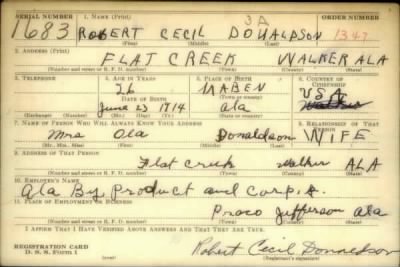 SERIAL NUMBER 1. NAME (Print) ORDER NUMBER
1683 ROBERT CECIL DONALDSON 3A 1347
(First) (Middle) (Last)
2. ADDRESS (Print)
FLAT CREEK WALKER ALA
(Number and street or R. F. D. number) (Town) (County) (State)
3. TELEPHONE 4. AGE IN YEARS 5. PLACE OF BIRTH 6. COUNTRY OF CITIZENSHIP
26 MABEN U.S.A
DATE OF BIRTH (Town or county)
June 23 1914 ala Walker
(Exchange) (Number) (Mo.) (Day) (Yr.) (State or country)
7. NAME OF PERSON WHO WILL ALWAYS KNOW YOUR ADDRESS 8. RELATIONSHIP OF THAT PERSON
Mrs Ola Donaldson WIFE
(Mr., Mrs., Miss) (First) (Middle) (Last)
9. ADDRESS OF THAT PERSON
Flat Creek Walker ALA
(Number and street or R. F. D. number) (Town) (County) (State)
10. EMPLOYER'S NAME
Ala By Product and Corp. A.
11. PLACE OF EMPLOYMENT OR BUSINESS
Praco Jefferson ala
(Number and street or R. F. D. number) (Town) (County) (State)
I AFFIRM THAT I HAVE VERIFIED ABOVE ANSWERS AND THAT THEY ARE TRUE.
REGISTRATION CARD
D. S. S. FORM 1
Robert Cecil Donaldson
(Registrant's signature)